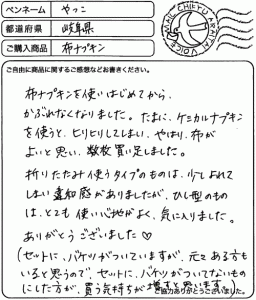 ペンネーム やっこ
都道府県 岐阜県
ご購入商品 布ナプキン
MAIL CHIEKU ARAITAI VOICE
ご自由に商品に関するご感想などお書きください。
布ナプキンを使いはじめてから、
かぶれなくなりました。たまに、ケミカルナプキン
を使うと、ヒリヒリしてしまい、やはり、布が
よいと思い、数枚買い足しました。
折りたたみ使うタイプのものは、少しずれて
しまい違和感がありましたが、ひし型のもの
は、とても使い心地がよく、気に入りました。
ありがとうございました♡
(セットに、バケツがついていますが、元々ある方も
いると思うので、セットに、バケツがついてないもの
にした方が、買う気持ちが増すと思います。
ご協力ありがとうございました。